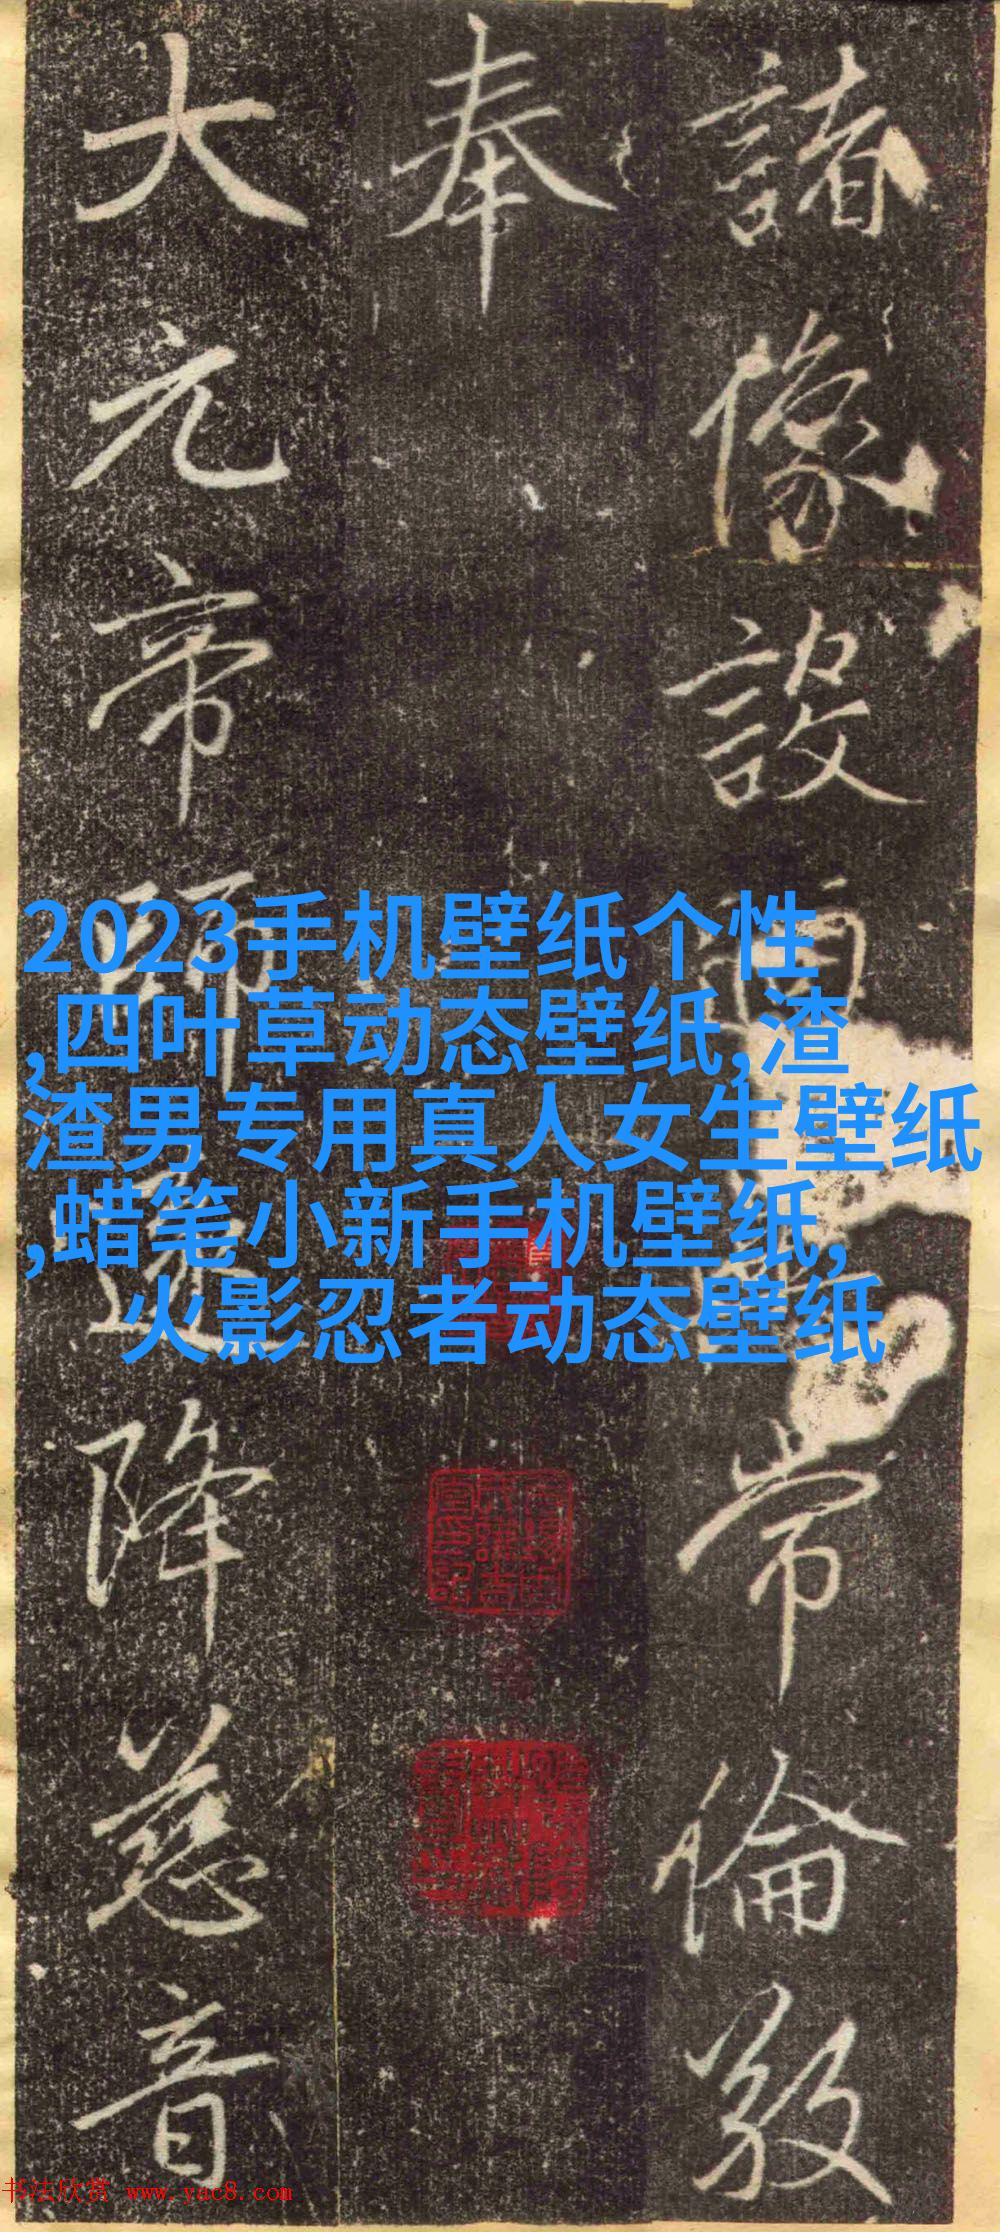 諸像設
常倫
奉
大元帝師
降慈音
2023手机壁纸个性
,四叶草动态壁纸,渣
渣男专用真人女生壁纸
,蜡笔小新手机壁纸,
火影忍者动态壁纸
书法欣赏 www.yac8.com